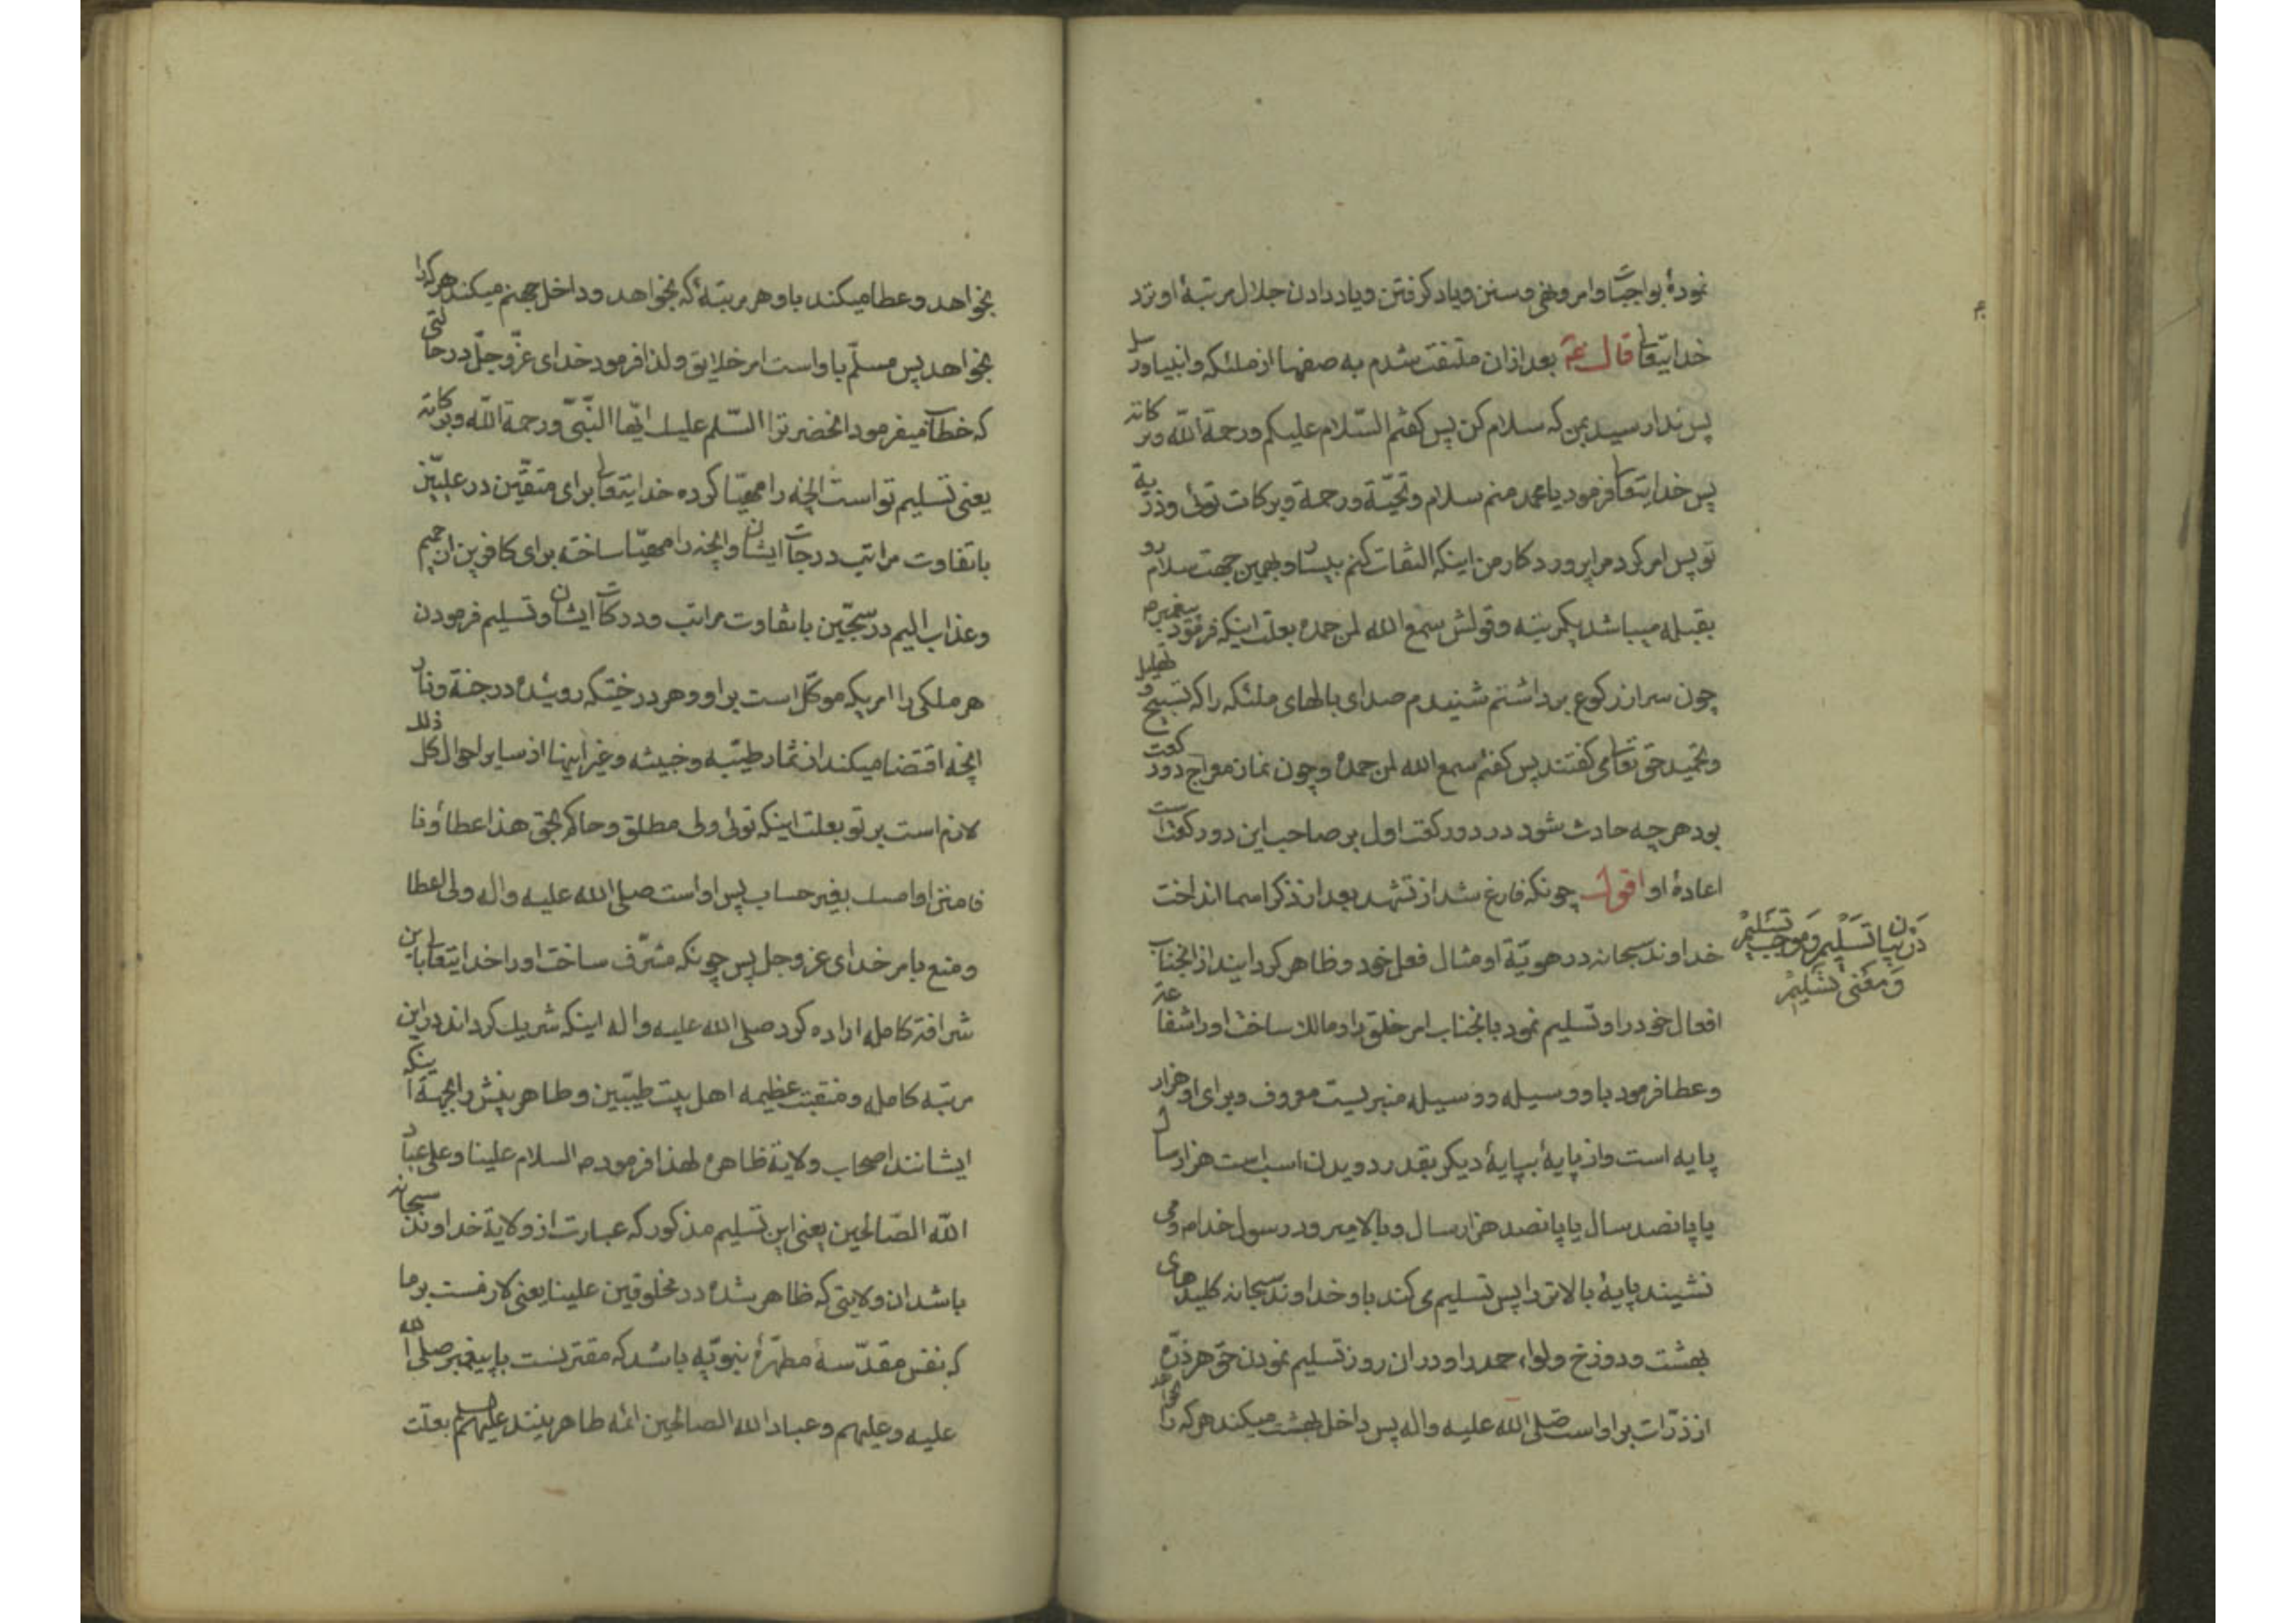 نمودهٔ بواجبات وامر ونهی وسنن ویاد کرفتن ویاد دادن جلال مرتبهٔ او نزد
خدایتعالی قال عم بعد ازان ملتفت شدم به صفها از ملئکه وانبیا ورسل
پس ندا رسید بمن که سلام کن پس کفتم السّلام علیکم ورحمة اللّه وبرکاته
پس خدایتعالی فرمود یا محمد منم سلام وتحیّة ورحمة وبرکات توئی وذریة
تو پس امر کرد مرا پروردکار من اینکه التفات کنم بیسار وبهمین جهت سلام رو
بقبله میباشد یکمرتبه وقولش سمع الله لمن حمده بعلت اینکه فرمود پیغمبر ص
چون سر از رکوع برداشتم شنیدم صدای بالهای ملئکه را که تسبیح وتهلیل
وتحمید حق تعالی می کفتند پس کفتم سمع الله لمن حمده وچون نماز معراج دو رکعت
بود هر چه حادث شود در دو رکعت اول بر صاحب این دو رکعت است
اعادهٔ او اقول چونکه فارغ شد از تشهد بعد از ذکر اسما انداخت
خداوند سبحانه در هویّة او مثال فعل خود وظاهر کردانید از انجناب
افعال خود را وتسلیم نمود بانجناب امر خلق را ومالک ساخت اورا شفاعة
وعطا فرمود باو وسیله ووسیله منبریست معروف وبرای او هزار
پایه است واز پایهٔ بپایهٔ دیکر بقدر دویدن اسب است هزار سال
یا پانصد سال یا پانصد هزار سال وبالا میرود رسول خدا ص ومی
نشیند پایهٔ بالاتر را پس تسلیم می کند باو خداوند سبحانه کلیدهای
بهشت ودوزخ ولواء حمد را ودر ان روز تسلیم نمودن حق هر ذرّه
از ذرّات بر او است صلی الله علیه واله پس داخل بهشت میکند هر که را
در بیان تسلیم وموجب تسلیم
ومعنی تسلیم
بخواهد وعطا میکند باو هر مرتبهٔ که بخواهد وداخل جهنم میکند هر که را
بخواهد پس مسلّم باو است امر خلایق ولذا فرمود خدای عزّ وجلّ در حالتی
که خطاب میفرمود انحضرترا السّلم علیک ایّها النّبّی ورحمة اللّه وبرکاته
یعنی تسلیم تو است انچه را مهیّا کرده خدایتعالی برای متقّین در علیّین
با تفاوت مراتب درجات ایشان وانچه را مهیّا ساخته برای کافرین از جحیم
وعذاب الیم در سجّین با تفاوت مراتب ودرکات ایشان وتسلیم فرمودن
هر ملکی را امریکه موکّل است بر او وهر درختیکه روئیده در جنة ونار
انچه اقتضا میکند از ثمار طیّبه وخبیثه وغیر اینها از سایر احوال کل ذلک
لازم است بر تو بعلت اینکه توئی ولی مطلق وحاکم بحق هذا عطاؤنا
فامنن او امسک بغیر حساب پس او است صلی الله علیه واله ولی اعطا
ومنع بامر خدای عز وجل پس چونکه مشّرف ساخت اورا خدایتعالی باین
شرافة کامله اراده کرد صلی الله علیه واله اینکه شریک کرداند در این
مرتبه کامله ومنقبت عظیمه اهل بیت طیّبین وطاهرینش را بجهة اینکه
ایشانند اصحاب ولایة ظاهره لهذا فرمود ص السلام علینا وعلی عباد
اللّه الصّالحین یعنی این تسلیم مذکور که عبارت از ولایة خداوند سبحانه
باشد ان ولایتی که ظاهر شده در مخلوقین علینا یعنی لازمست بر ما
که نفس مقدّسهٔ مطهّرهٔ نبویّه باشد که مقترنست با پیغمبر صلی الله
علیه وعلیهم وعباد الله الصالحین ائمه طاهرینند علیهم بعلت